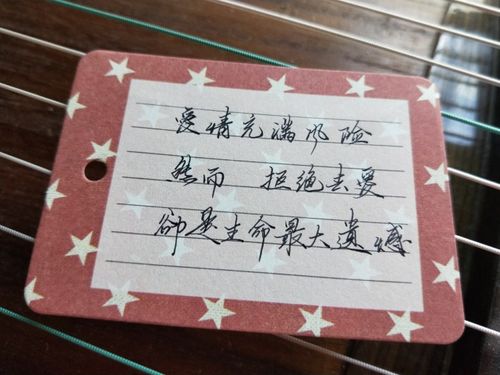 爱情充满风险
然而 拒绝去爱
却是生命最大遗憾